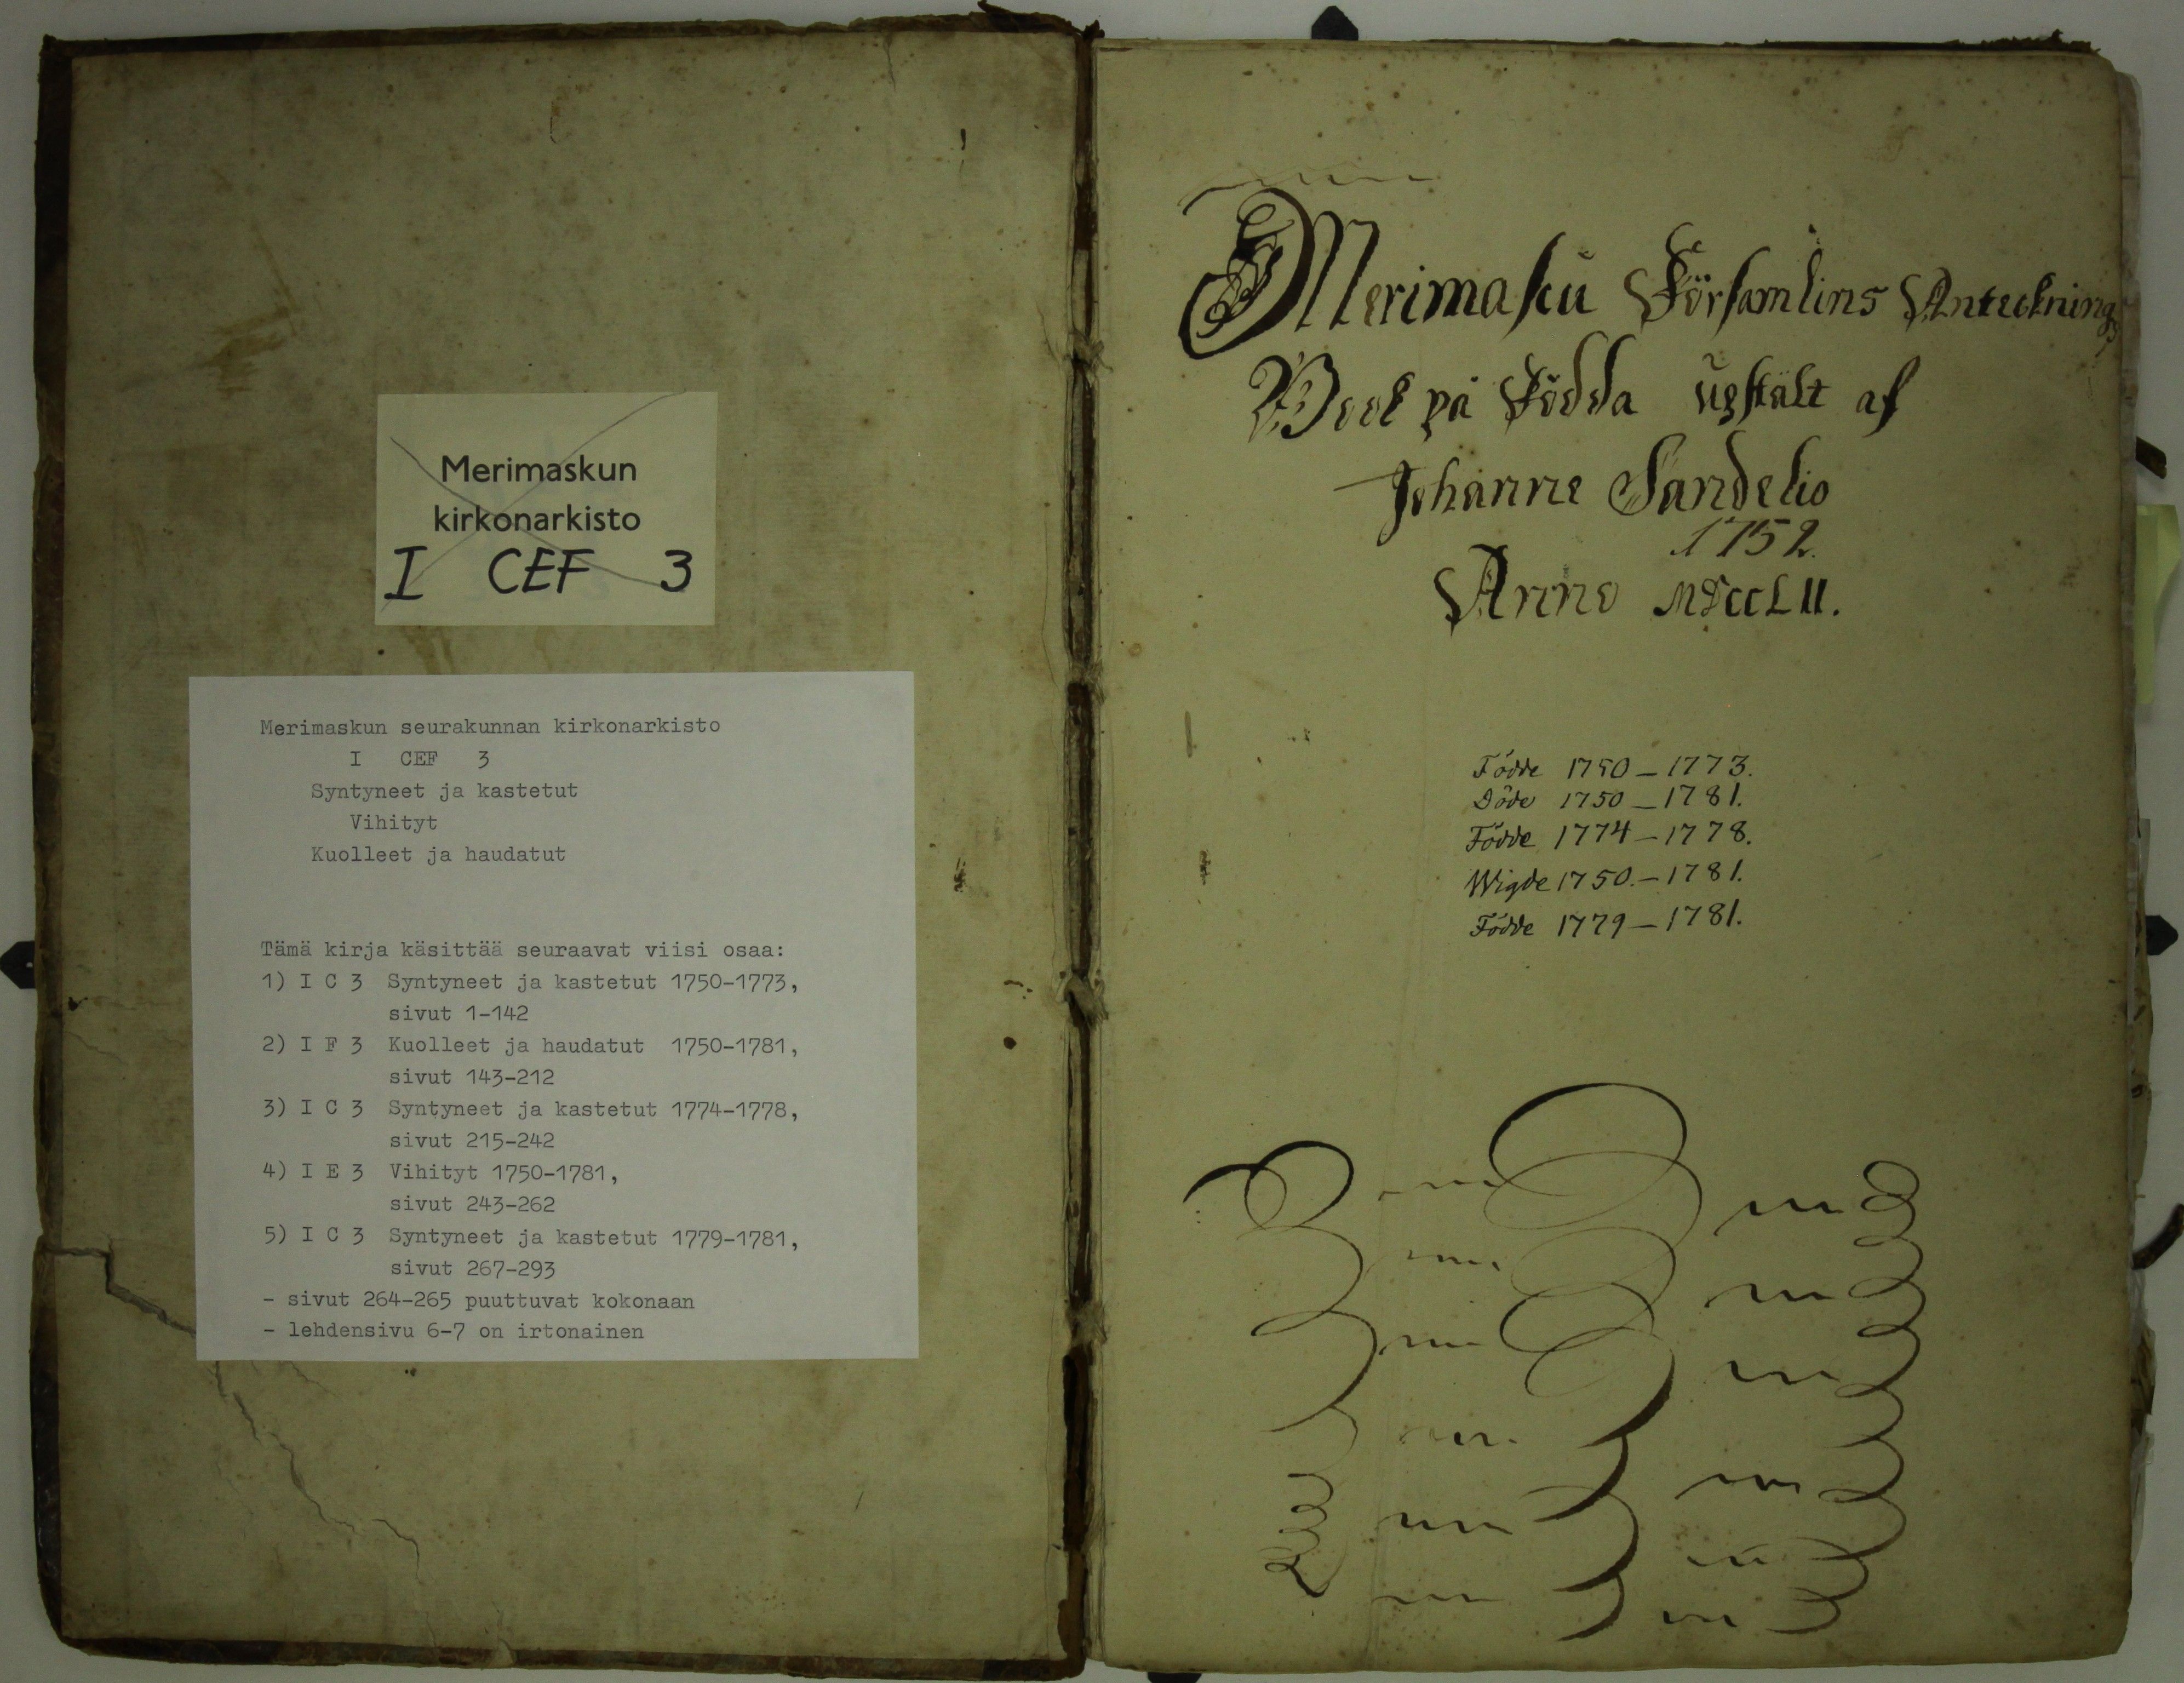 Merimaskun
kirkonarkisto
I CEF 3
Merimaskun seurakunnan kirkonarkisto
I CEF 3
Syntyneet ja kastetut
Vihityt
Kuolleet ja haudatut
Tämä kirja käsittää seuraavat viisi osaa:
1) I C 3 Syntyneet ja kastetut 1750-1773,
sivut 1-142
2) I F 3 Kuolleet ja haudatut 1750-1781,
sivut 143-212
3) I C 3 Syntyneet ja kastetut 1774-1778,
sivut 215-242
4) I E 3 Vihityt 1750-1781,
sivut 243-262
5) I C 3 Syntyneet ja kastetut 1779-1781,
sivut 267-293
- sivut 264-265 puuttuvat kokonaan
- lehdensivu 6-7 on irtonainen
Merimasku Församlins Antecknings
Book på Födda upstält af
Johanne Sandelio
1752.
Anno MDCCLII.
Födde 1750-1773.
Döde 1750-1781.
Födde 1774-1778.
Wigde 1750.-1781.
Födde 1779-1781.